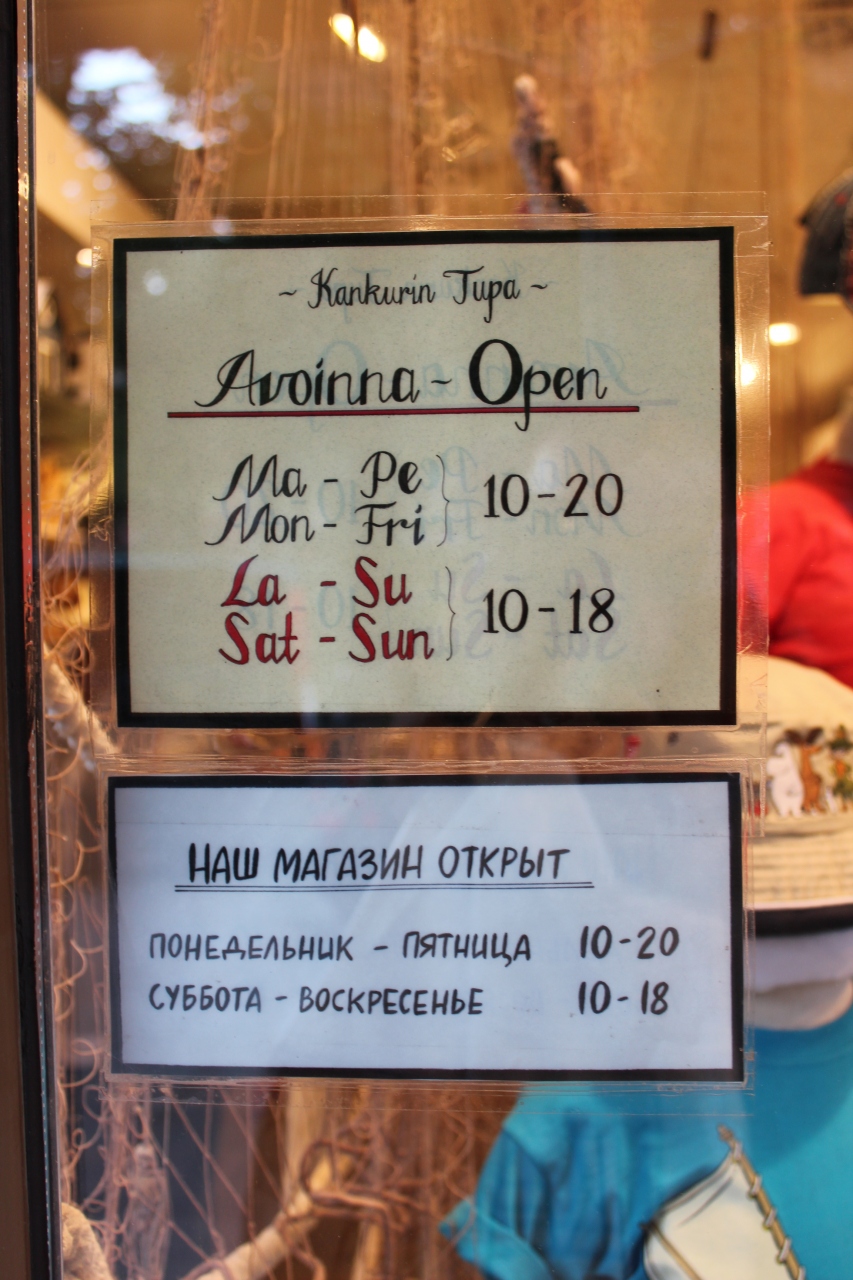 ~ Kankurin Tupa ~
Avoinna ~ Open
Ma - Pe
Mon - Fri } 10-20
La - Su
Sat - Sun } 10-18
НАШ МАГАЗИН ОТКРЫТ
ПОНЕДЕЛЬНИК - ПЯТНИЦА 10-20
СУББОТА - ВОСКРЕСЕНЬЕ 10-18